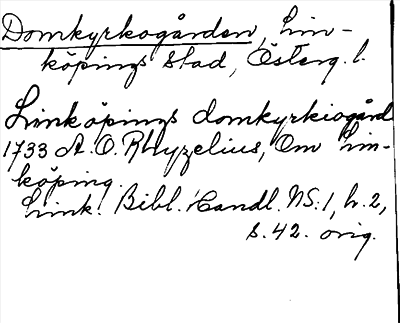 Domkyrkogården, Lin-
köpings stad, Österg. l.
Linköpings domkyrkiogård
1733 A. O. Rhyzelius, Om Lin-
köping.
Link. Bibl. Handl. NS. 1, h. 2,
s. 42. orig.